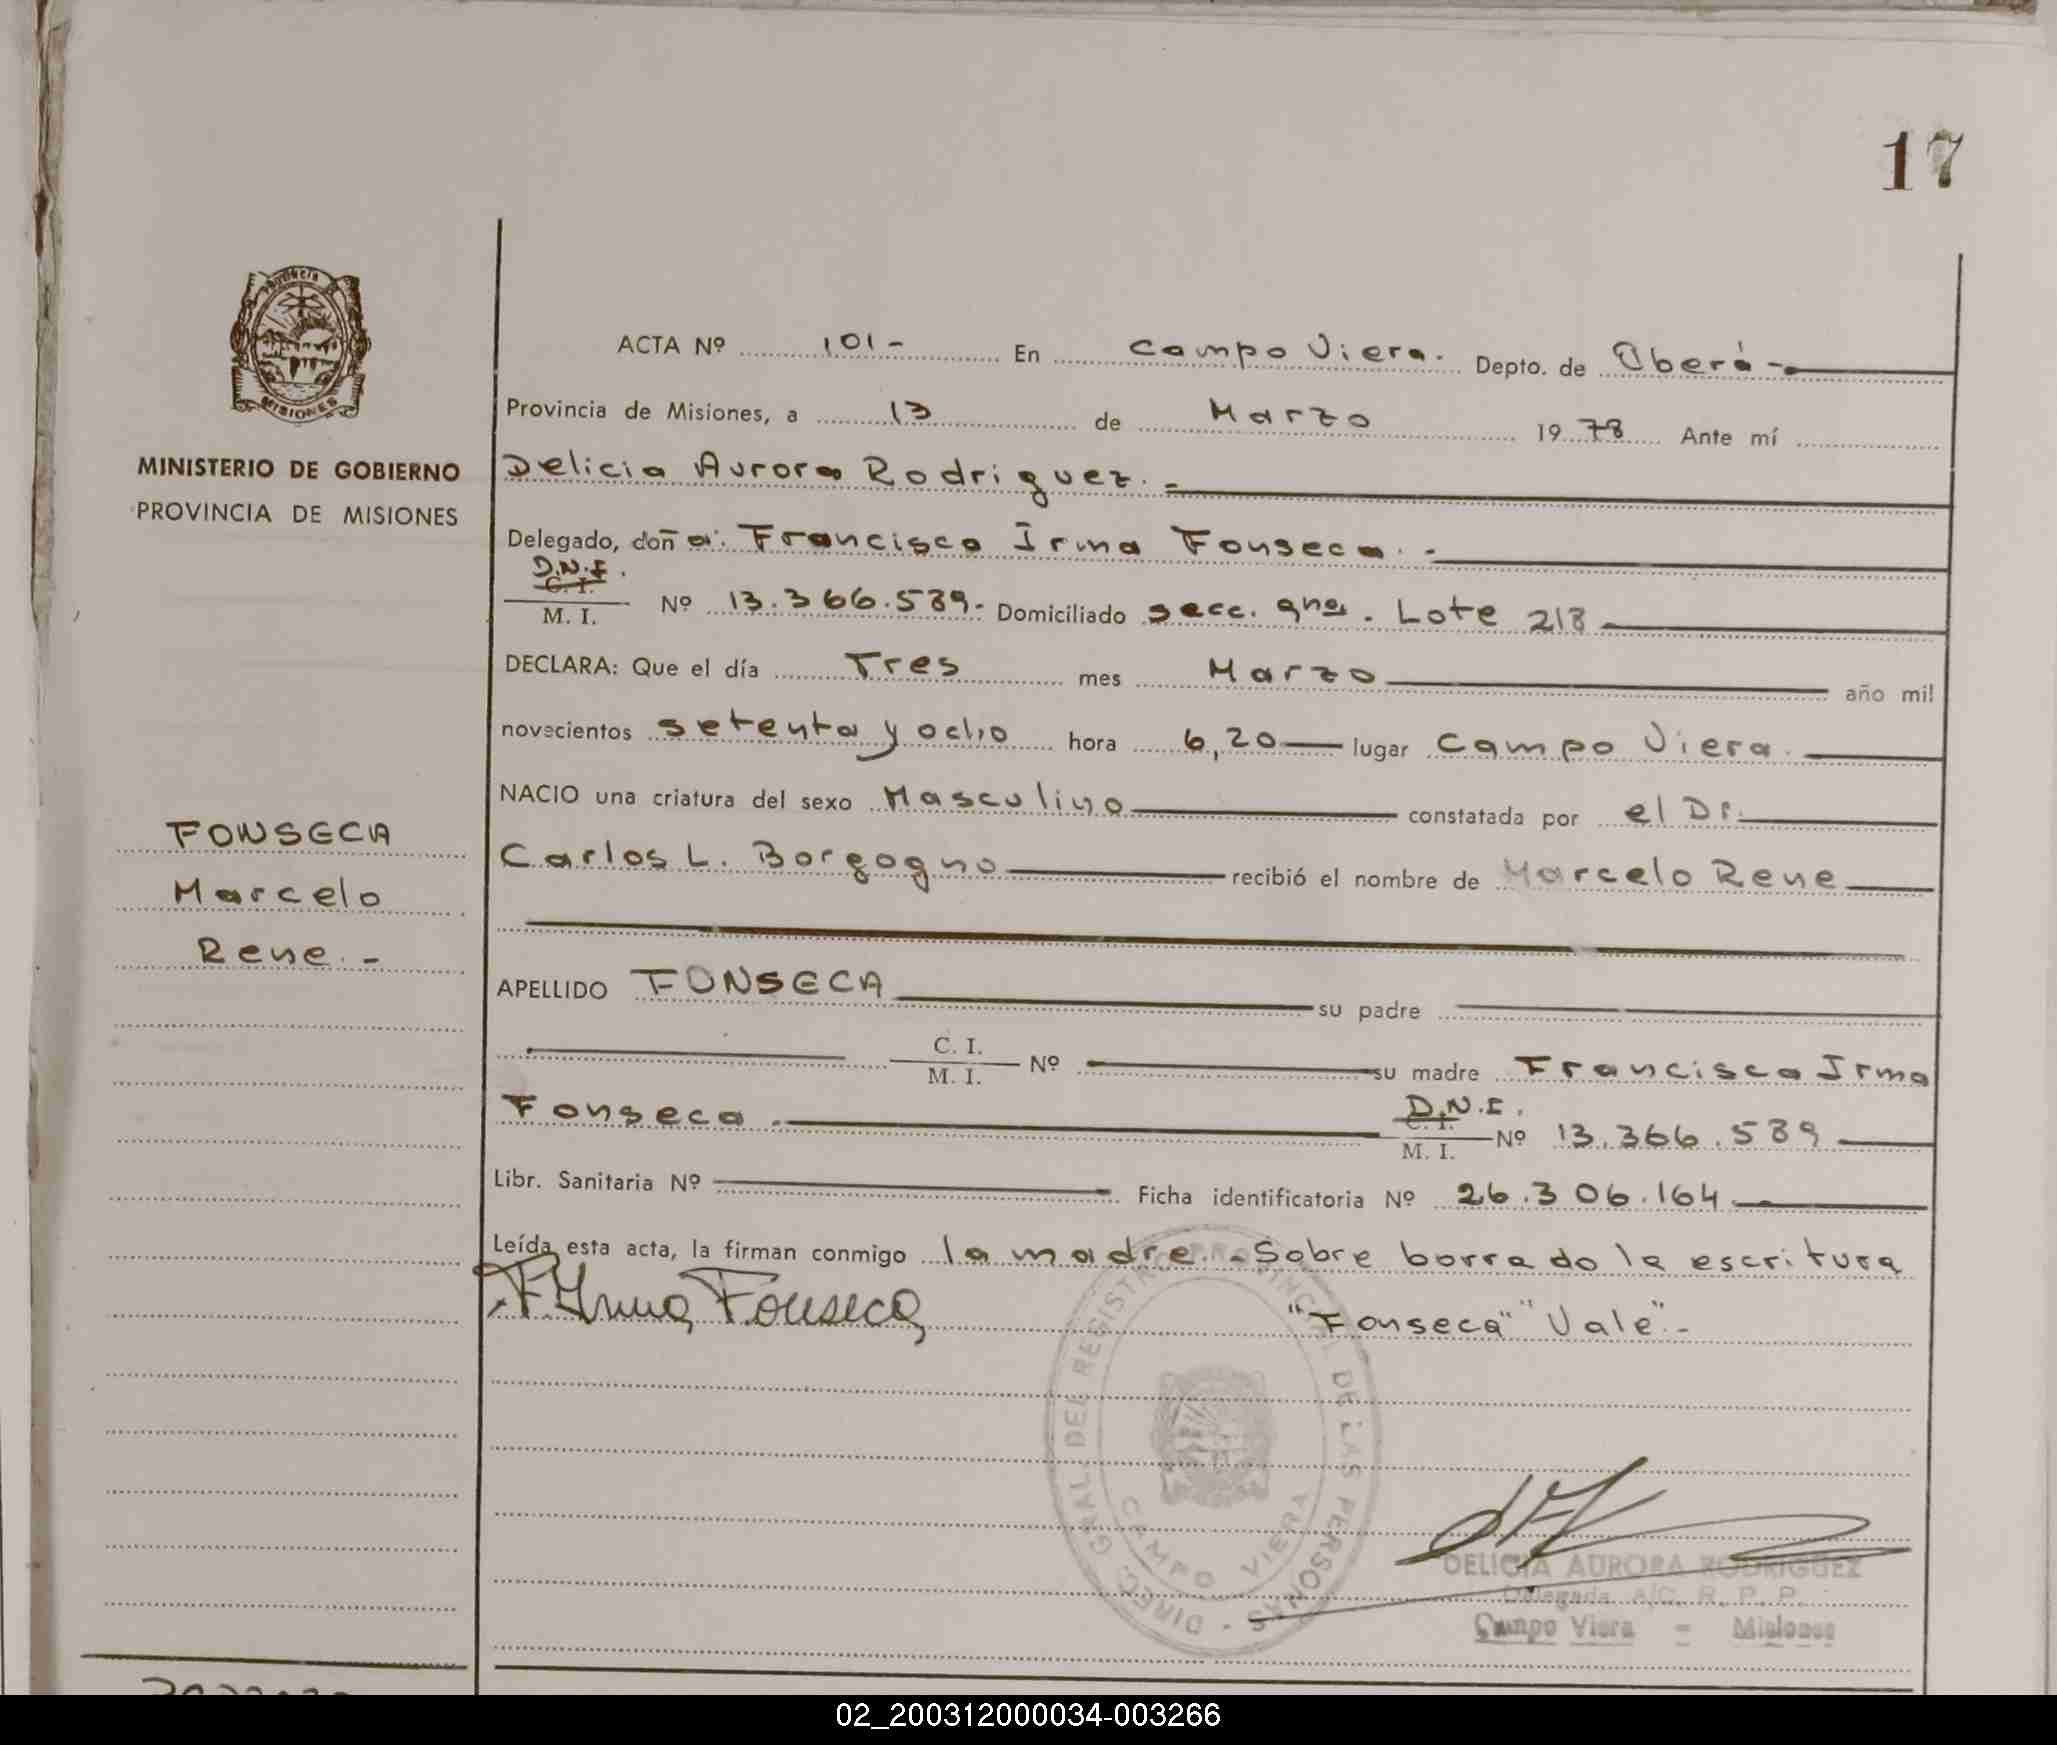 17
Provincia
MISIONES
MINISTERIO DE GOBIERNO
PROVINCIA DE MISIONES
FONSECA
Marcelo
Rene.-
ACTA Nº 101- En Campo Viera. Depto. de Oberá-
Provincia de Misiones, a 13 de Marzo 1978 Ante mí
Delicia Aurora Rodriguez.-
Delegado, doña: Francisca Irma Fonseca.-
D.N.I.
C. I.
M. I. Nº 13.366.589.- Domiciliado secc. 9na. Lote 218
DECLARA: Que el día Tres mes Marzo año mil
novecientos setenta y ocho hora 6,20 lugar Campo Viera.
NACIO una criatura del sexo Masculino constatada por el Dr.
Carlos L. Borgogno recibió el nombre de Marcelo Rene
APELLIDO FONSECA su padre
C. I.
M. I. Nº su madre Francisca Irma
Fonseca. D.N.I.
C. I.
M. I. Nº 13.366.589
Libr. Sanitaria Nº Ficha identificatoria Nº 26.306.164
Leída esta acta, la firman conmigo la madre.-Sobre borrado la escritura
F. Irma Fonseca "Fonseca" "Vale".-
DIREC. GRAL. DEL REGISTRO PROVINCIAL DE LAS PERSONAS -
CAMPO VIERA
DELICIA AURORA RODRIGUEZ
Delegada A/C. R. P. P.
Campo Viera - Misiones
02_200312000034-003266